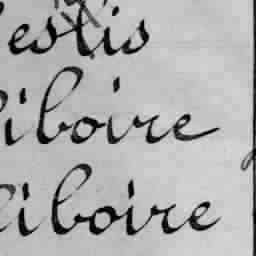 estis
iboire
iboire